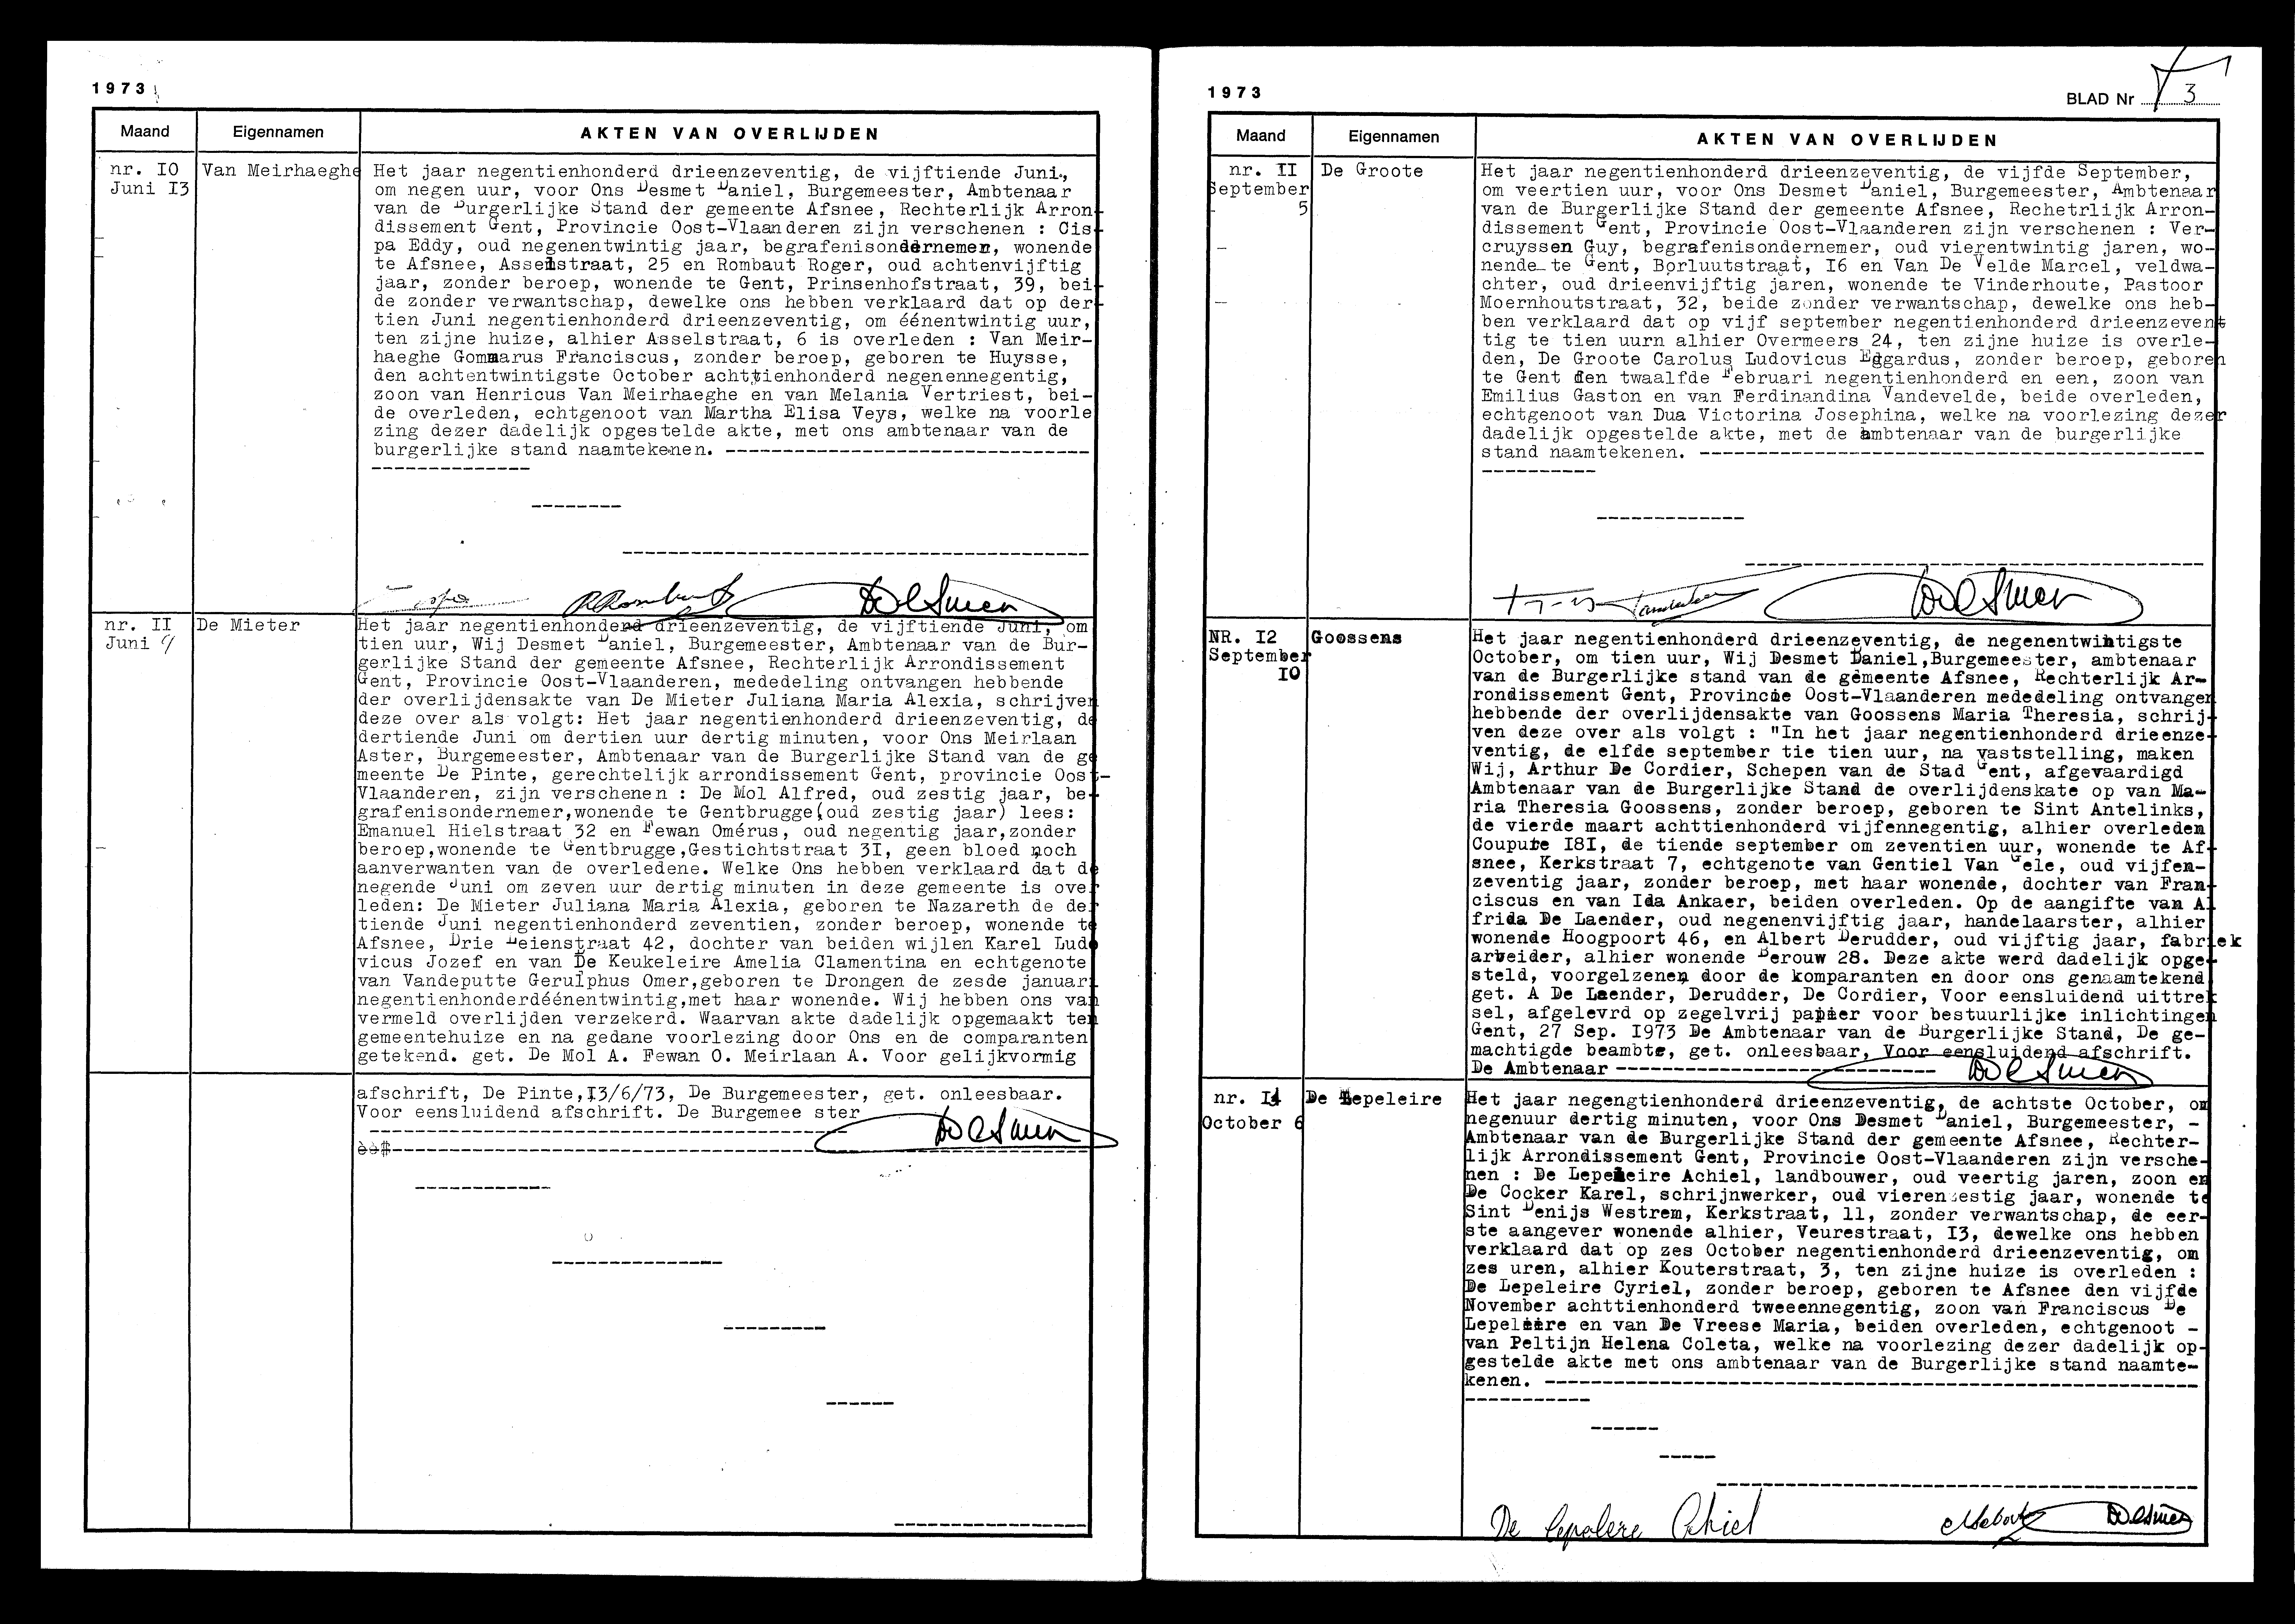 1973
Maand Eigennamen AKTEN VAN OVERLIJDEN
nr. IO
Juni I3
Van Meirhaeghe
Het jaar negentienhonderd drieenzeventig, de vijftiende Juni.,
om negen uur, voor Ons Desmet Daniel, Burgemeester, Ambtenaar
van de Burgerlijke Stand der gemeente Afsnee, Rechterlijk Arron-
dissement Gent, Provincie Oost-Vlaanderen zijn verschenen : Cis-
pa Eddy, oud negenentwintig jaar, begrafenisondernemer, wonende
te Afsnee, Asselstraat, 25 en Rombaut Roger, oud achtenvijftig
jaar, zonder beroep, wonende te Gent, Prinsenhofstraat, 39, bei-
de zonder verwantschap, dewelke ons hebben verklaard dat op der-
tien Juni negentienhonderd drieenzeventig, om éénentwintig uur,
ten zijne huize, alhier Asselstraat, 6 is overleden : Van Meir-
haeghe Gommarus Franciscus, zonder beroep, geboren te Huysse,
den achtentwintigste October achttienhonderd negenennegentig,
zoon van Henricus Van Meirhaeghe en van Melania Vertriest, bei-
de overleden, echtgenoot van Martha Elisa Veys, welke na voorle
zing dezer dadelijk opgestelde akte, met ons ambtenaar van de
burgerlijke stand naamtekenen. ------------------------------
nr. II
Juni 9
De Mieter
Het jaar negentienhonderd drieenzeventig, de vijftiende Juni, om
tien uur, Wij Desmet Daniel, Burgemeester, Ambtenaar van de Bur-
gerlijke Stand der gemeente Afsnee, Rechterlijk Arrondissement
Gent, Provincie Oost-Vlaanderen, mededeling ontvangen hebbende
der overlijdensakte van De Mieter Juliana Maria Alexia, schrijven
deze over als volgt: Het jaar negentienhonderd drieenzeventig, de
dertiende Juni om dertien uur dertig minuten, voor Ons Meirlaan
Aster, Burgemeester, Ambtenaar van de Burgerlijke Stand van de ge
meente De Pinte, gerechtelijk arrondissement Gent, provincie Oost-
Vlaanderen, zijn verschenen : De Mol Alfred, oud zestig jaar, be-
grafenisondernemer,wonende te Gentbrugge(oud zestig jaar) lees:
Emanuel Hielstraat 32 en Fewan Omérus, oud negentig jaar,zonder
beroep,wonende te Gentbrugge,Gestichtstraat 3I, geen bloed noch
aanverwanten van de overledene. Welke Ons hebben verklaard dat de
negende Juni om zeven uur dertig minuten in deze gemeente is over
leden: De Mieter Juliana Maria Alexia, geboren te Nazareth de der
tiende Juni negentienhonderd zeventien, zonder beroep, wonende te
Afsnee, Drie Leienstraat 42, dochter van beiden wijlen Karel Ludo
vicus Jozef en van De Keukeleire Amelia Clamentina en echtgenote
van Vandeputte Gerulphus Omer,geboren te Drongen de zesde januari
negentienhonderdéénentwintig,met haar wonende. Wij hebben ons van
vermeld overlijden verzekerd. Waarvan akte dadelijk opgemaakt ten
gemeentehuize en na gedane voorlezing door Ons en de comparanten
getekend. get. De Mol A. Fewan O. Meirlaan A. Voor gelijkvormig
afschrift, De Pinte,I3/6/73, De Burgemeester, get. onleesbaar.
Voor eensluidend afschrift. De Burgemee ster
1973
BLAD Nr 3
Maand Eigennamen AKTEN VAN OVERLIJDEN
nr. II
September
5
De Groote
Het jaar negentienhonderd drieenzeventig, de vijfde September,
om veertien uur, voor Ons Desmet Daniel, Burgemeester, Ambtenaar
van de Burgerlijke Stand der gemeente Afsnee, Rechetrlijk Arron-
dissement Gent, Provincie Oost-Vlaanderen zijn verschenen : Ver-
cruyssen Guy, begrafenisondernemer, oud vierentwintig jaren, wo-
nende te Gent, Borluutstraat, I6 en Van De Velde Marcel, veldwa-
chter, oud drieenvijftig jaren, wonende te Vinderhoute, Pastoor
Moernhoutstraat, 32, beide zonder verwantschap, dewelke ons heb-
ben verklaard dat op vijf september negentienhonderd drieenzevent
tig te tien uurn alhier Overmeers 24, ten zijne huize is overle-
den, De Groote Carolus Ludovicus Edgardus, zonder beroep, geboren
te Gent den twaalfde Februari negentienhonderd en een, zoon van
Emilius Gaston en van Ferdinandina Vandevelde, beide overleden,
echtgenoot van Dua Victorina Josephina, welke na voorlezing dezer
dadelijk opgestelde akte, met de ambtenaar van de burgerlijke
stand naamtekenen. ------------------------------------------
NR. I2
September
IO
Goossens
Het jaar negentienhonderd drieenzeventig, de negenentwintigste
October, om tien uur, Wij Desmet Daniel,Burgemeester, ambtenaar
van de Burgerlijke stand van de gemeente Afsnee, Rechterlijk Ar-
rondissement Gent, Provincie Oost-Vlaanderen mededeling ontvangen
hebbende der overlijdensakte van Goossens Maria Theresia, schrij-
ven deze over als volgt : "In het jaar negentienhonderd drieenze-
ventig, de elfde september tie tien uur, na vaststelling, maken
Wij, Arthur De Cordier, Schepen van de Stad Gent, afgevaardigd
Ambtenaar van de Burgerlijke Stand de overlijdenskate op van Ma-
ria Theresia Goossens, zonder beroep, geboren te Sint Antelinks,
de vierde maart achttienhonderd vijfennegentig, alhier overleden
Coupure I8I, de tiende september om zeventien uur, wonende te Af-
snee, Kerkstraat 7, echtgenote van Gentiel Van Gele, oud vijfen-
zeventig jaar, zonder beroep, met haar wonende, dochter van Fran-
ciscus en van Ida Ankaer, beiden overleden. Op de aangifte van A
frida De Laender, oud negenenvijftig jaar, handelaarster, alhier
wonende Hoogpoort 46, en Albert Derudder, oud vijftig jaar, fabriek
arbeider, alhier wonende Berouw 28. Deze akte werd dadelijk opge-
steld, voorgelzenen door de komparanten en door ons genaamtekend
get. A De Laender, Derudder, De Cordier, Voor eensluidend uittrek
sel, afgelevrd op zegelvrij papier voor bestuurlijke inlichtingen
Gent, 27 Sep. I973 De Ambtenaar van de Burgerlijke Stand, De ge-
machtigde beambte, get. onleesbaar, Voor eensluidend afschrift.
De Ambtenaar ------------------------------
nr. I4
October 6
De Lepeleire
Het jaar negengtienhonderd drieenzeventig, de achtste October, om
negenuur dertig minuten, voor Ons Desmet Daniel, Burgemeester, -
Ambtenaar van de Burgerlijke Stand der gemeente Afsnee, Rechter-
lijk Arrondissement Gent, Provincie Oost-Vlaanderen zijn versche-
nen : De Lepeleire Achiel, landbouwer, oud veertig jaren, zoon en
De Cocker Karel, schrijnwerker, oud vierenzestig jaar, wonende te
Sint Denijs Westrem, Kerkstraat, 11, zonder verwantschap, de eer-
ste aangever wonende alhier, Veurestraat, I3, dewelke ons hebben
verklaard dat op zes October negentienhonderd drieenzeventig, om
zes uren, alhier Kouterstraat, 3, ten zijne huize is overleden :
De Lepeleire Cyriel, zonder beroep, geboren te Afsnee den vijfde
November achttienhonderd tweeennegentig, zoon van Franciscus De
Lepeleire en van De Vreese Maria, beiden overleden, echtgenoot -
van Peltijn Helena Coleta, welke na voorlezing dezer dadelijk op-
gestelde akte met ons ambtenaar van de Burgerlijke stand naamte-
kenen. ------------------------------------------------------
De Lepelere Achiel